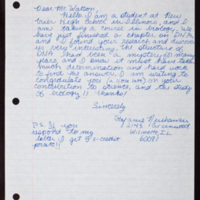 Dear Mr. Watson,
Hello. I am a student at New
Trier High School in Illinois, and I
am taking a course in biology. We
have just finished a chapter on DNA
and I found your research and discover-
ies very interesting. The structure of
DNA had been a mystery many
years and I know it must have taken
much determination and hard work
to find the answer. I am writing to
congratulate you (a wow!) on your
contribution to science, and the study
of biology!! Thanks!
Sincerely
P.S. If you
respond to my
letter I get extra credit
points!!
Winnetka, IL
60093